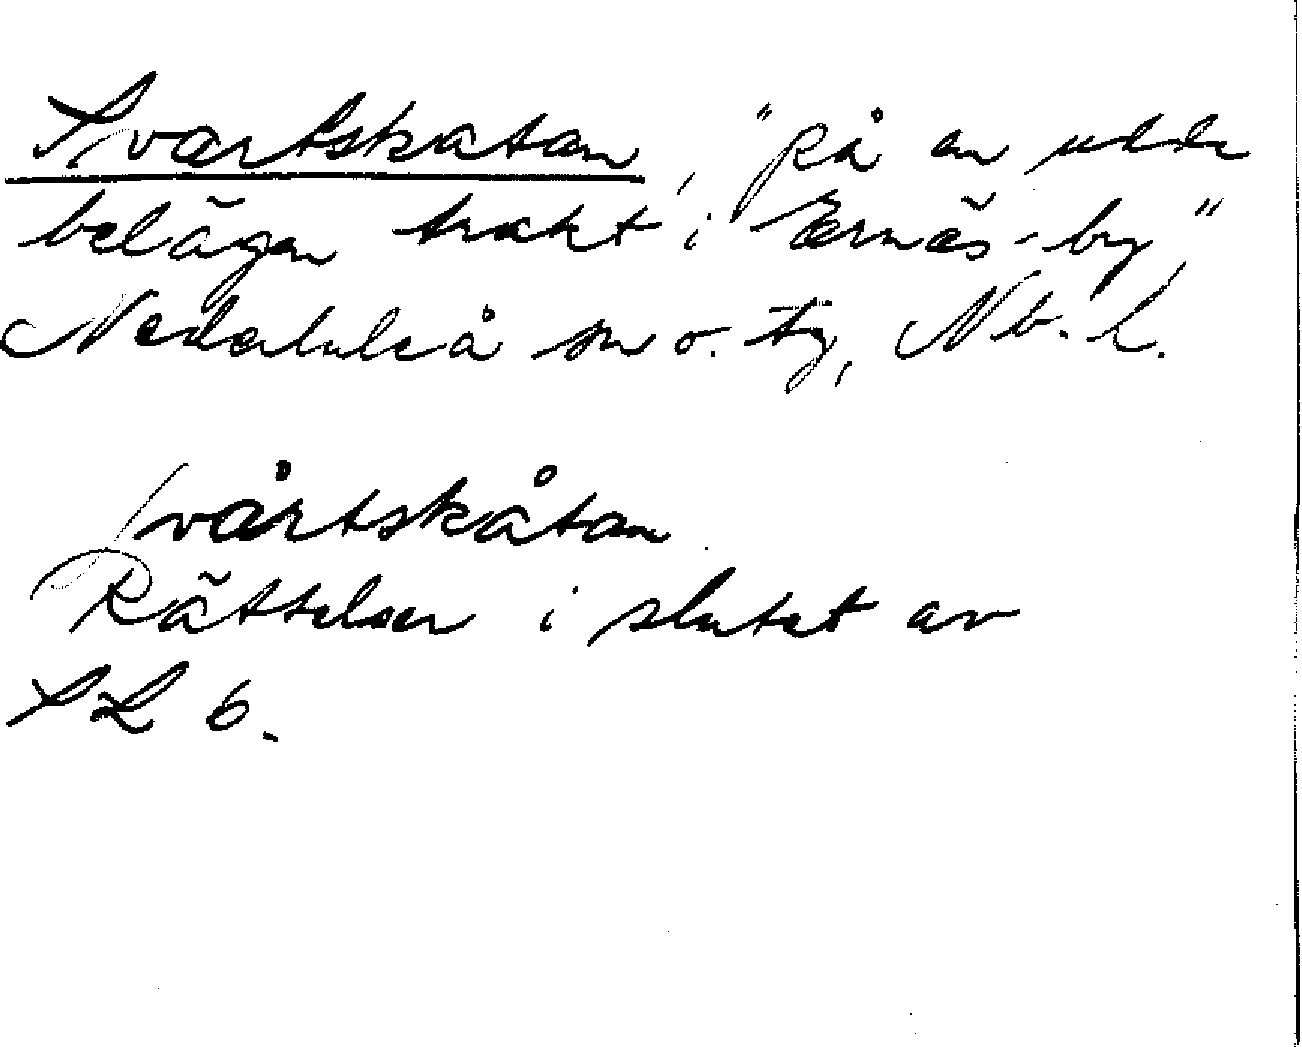 Svartskatan, "på en udde
belägen trakt i Ernäs-by",
Nederluleå sn o. tg, Nb. l.
svårtskåtan
Rättelser i slutet av
SL 6.